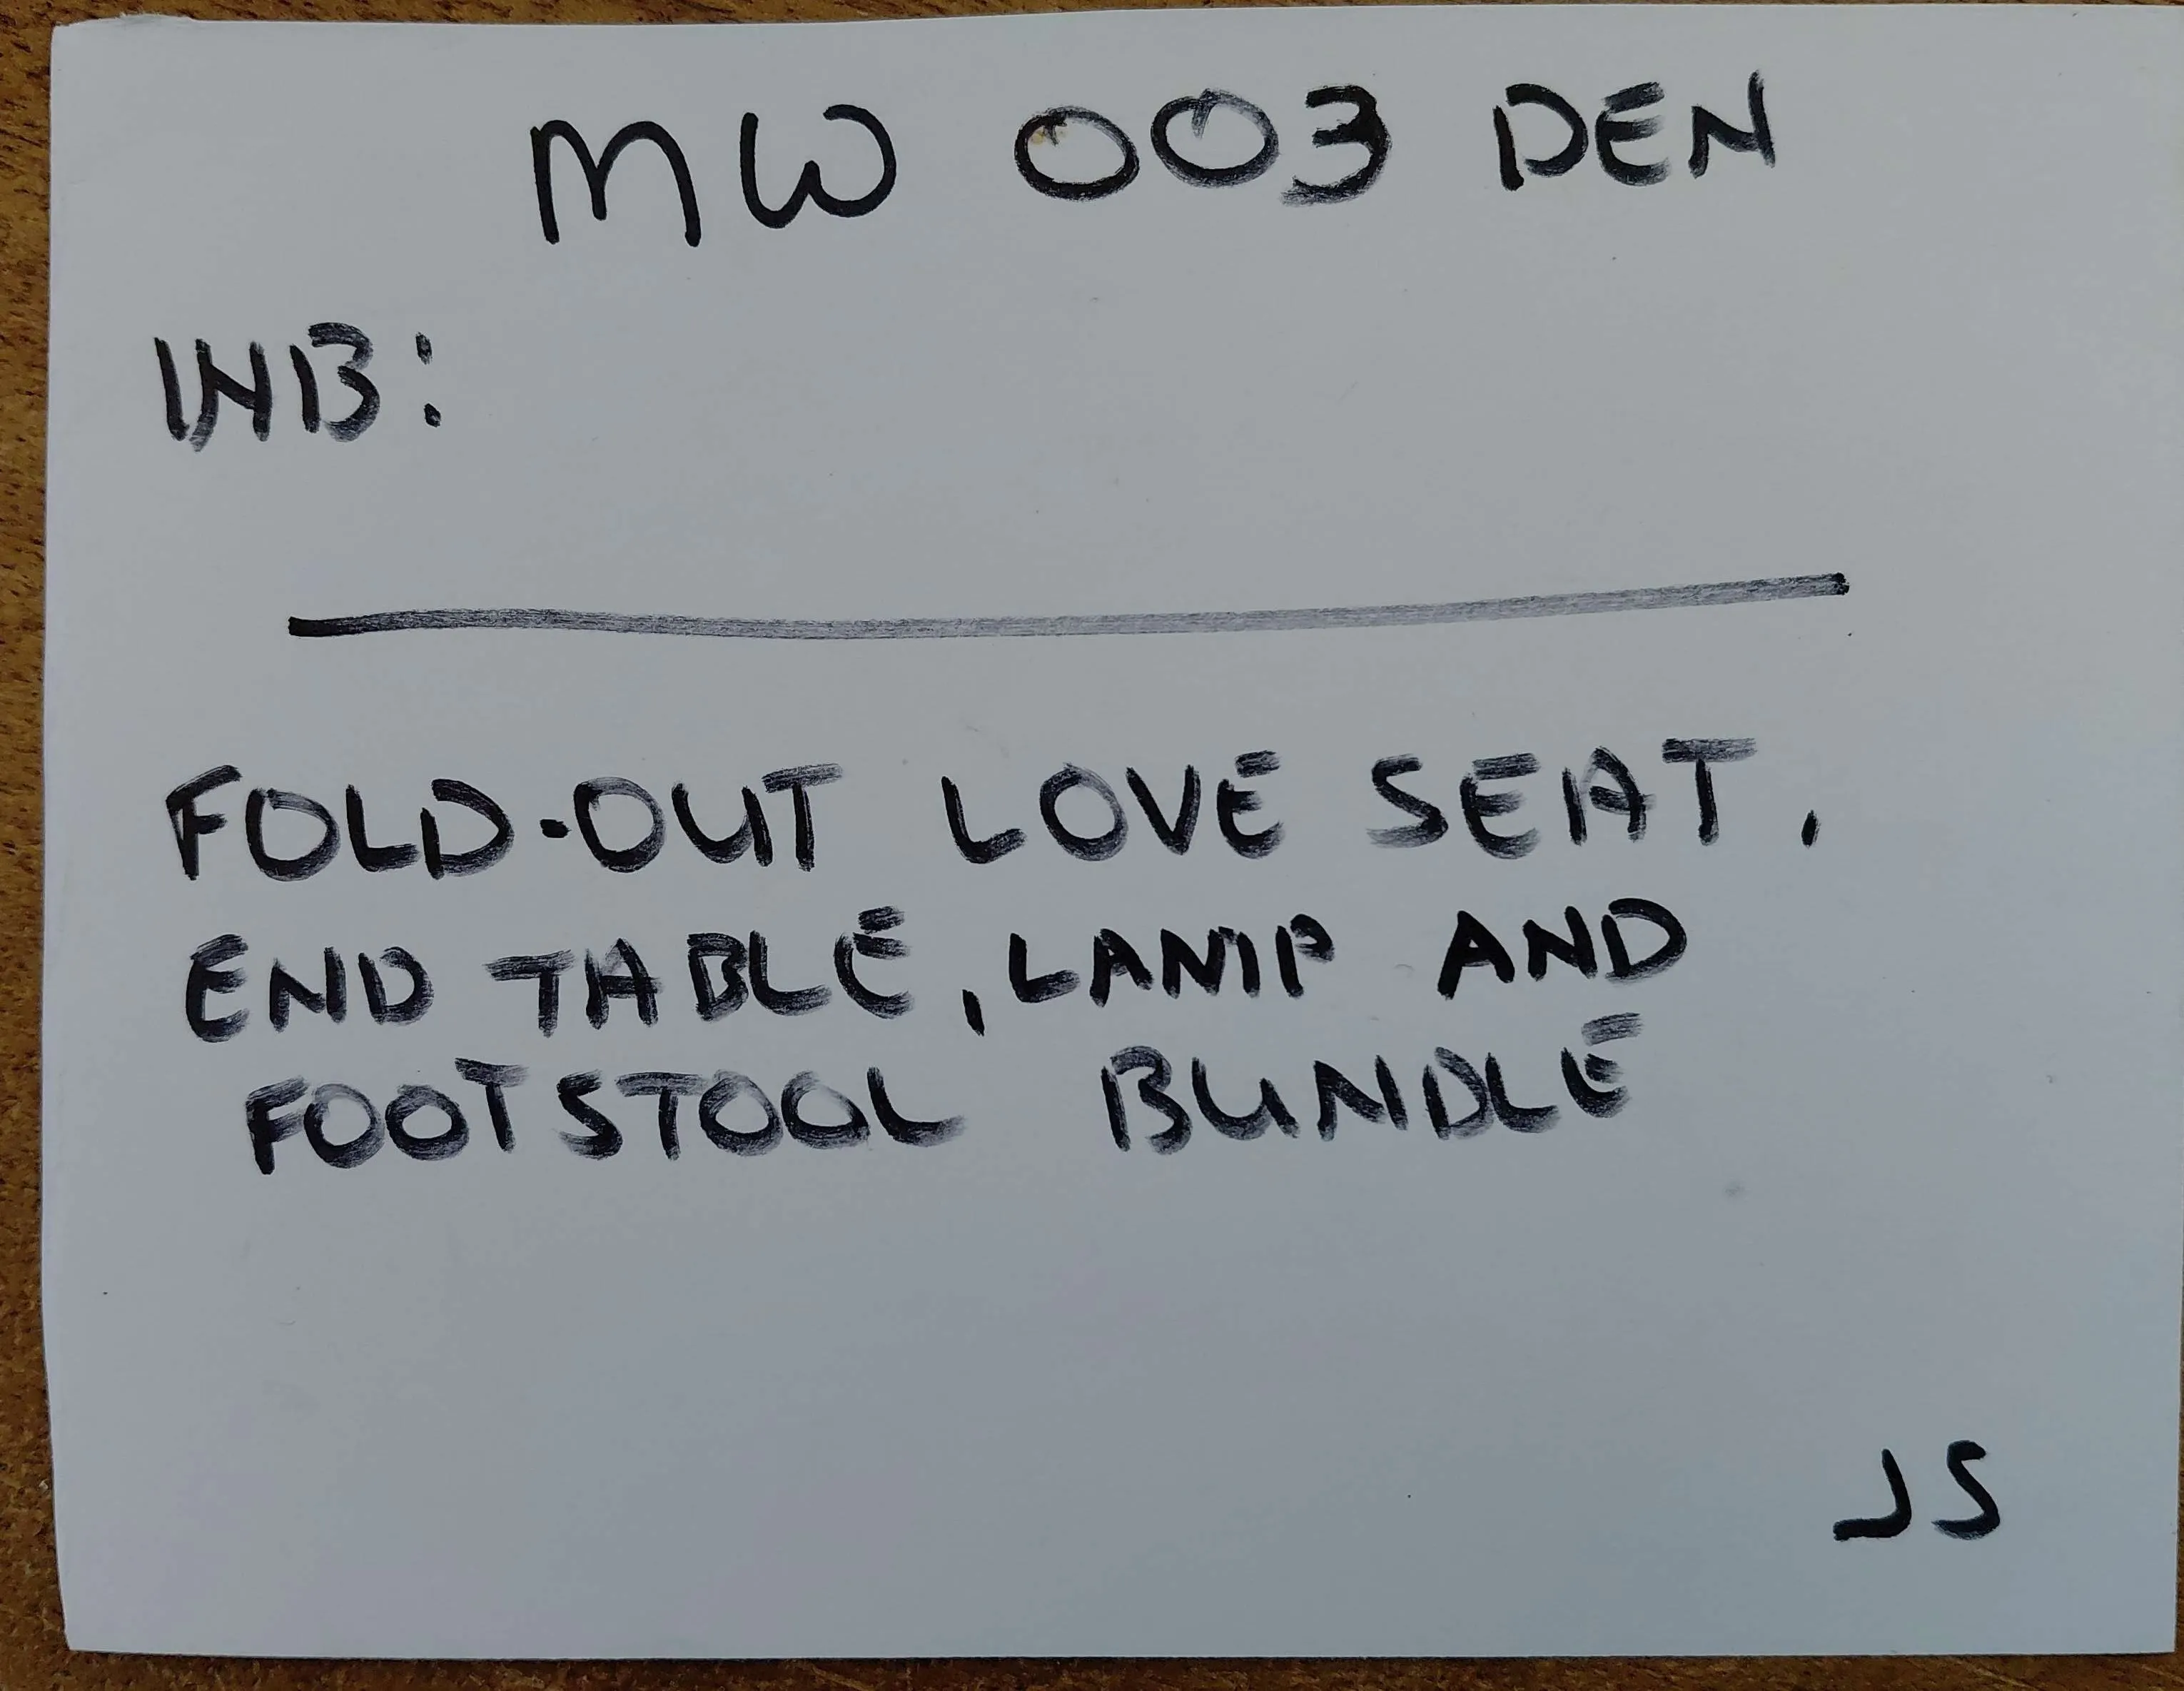 MW 003 DEN
INB:
FOLD-OUT LOVE SEAT.
END TABLE, LAMP AND
FOOTSTOOL BUNDLE
JS